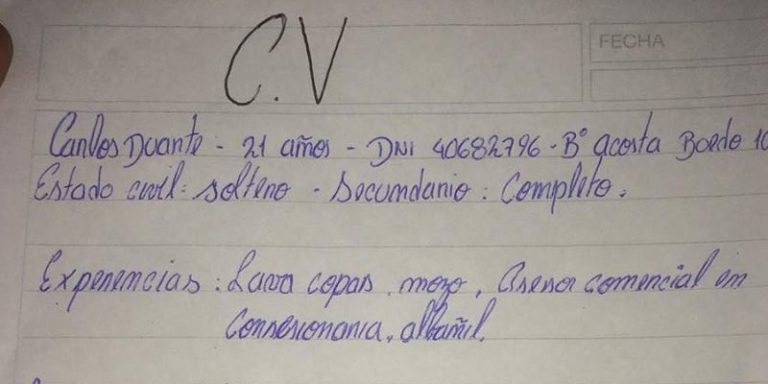 C.V
FECHA
Carlos Duarte - 21 años - DNI 40682796 - B° acosta Boedo 10
Estado civil: soltero - Secundario: Completo.
Experiencias: Lava copas, mozo, Asesor comercial en
Consesionaria, albañil.